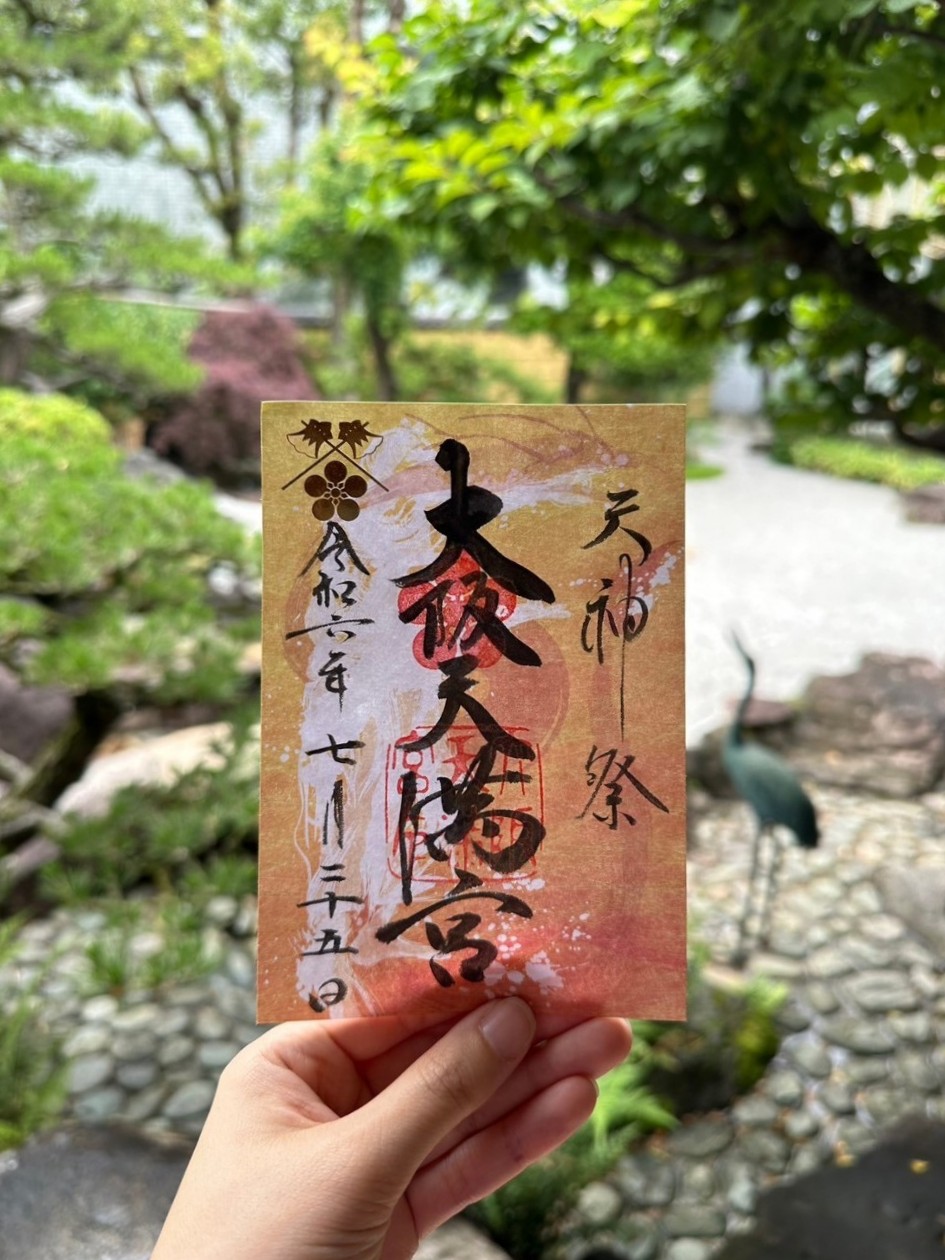 天神祭
大阪天満宮
令和六年 七月二十五日